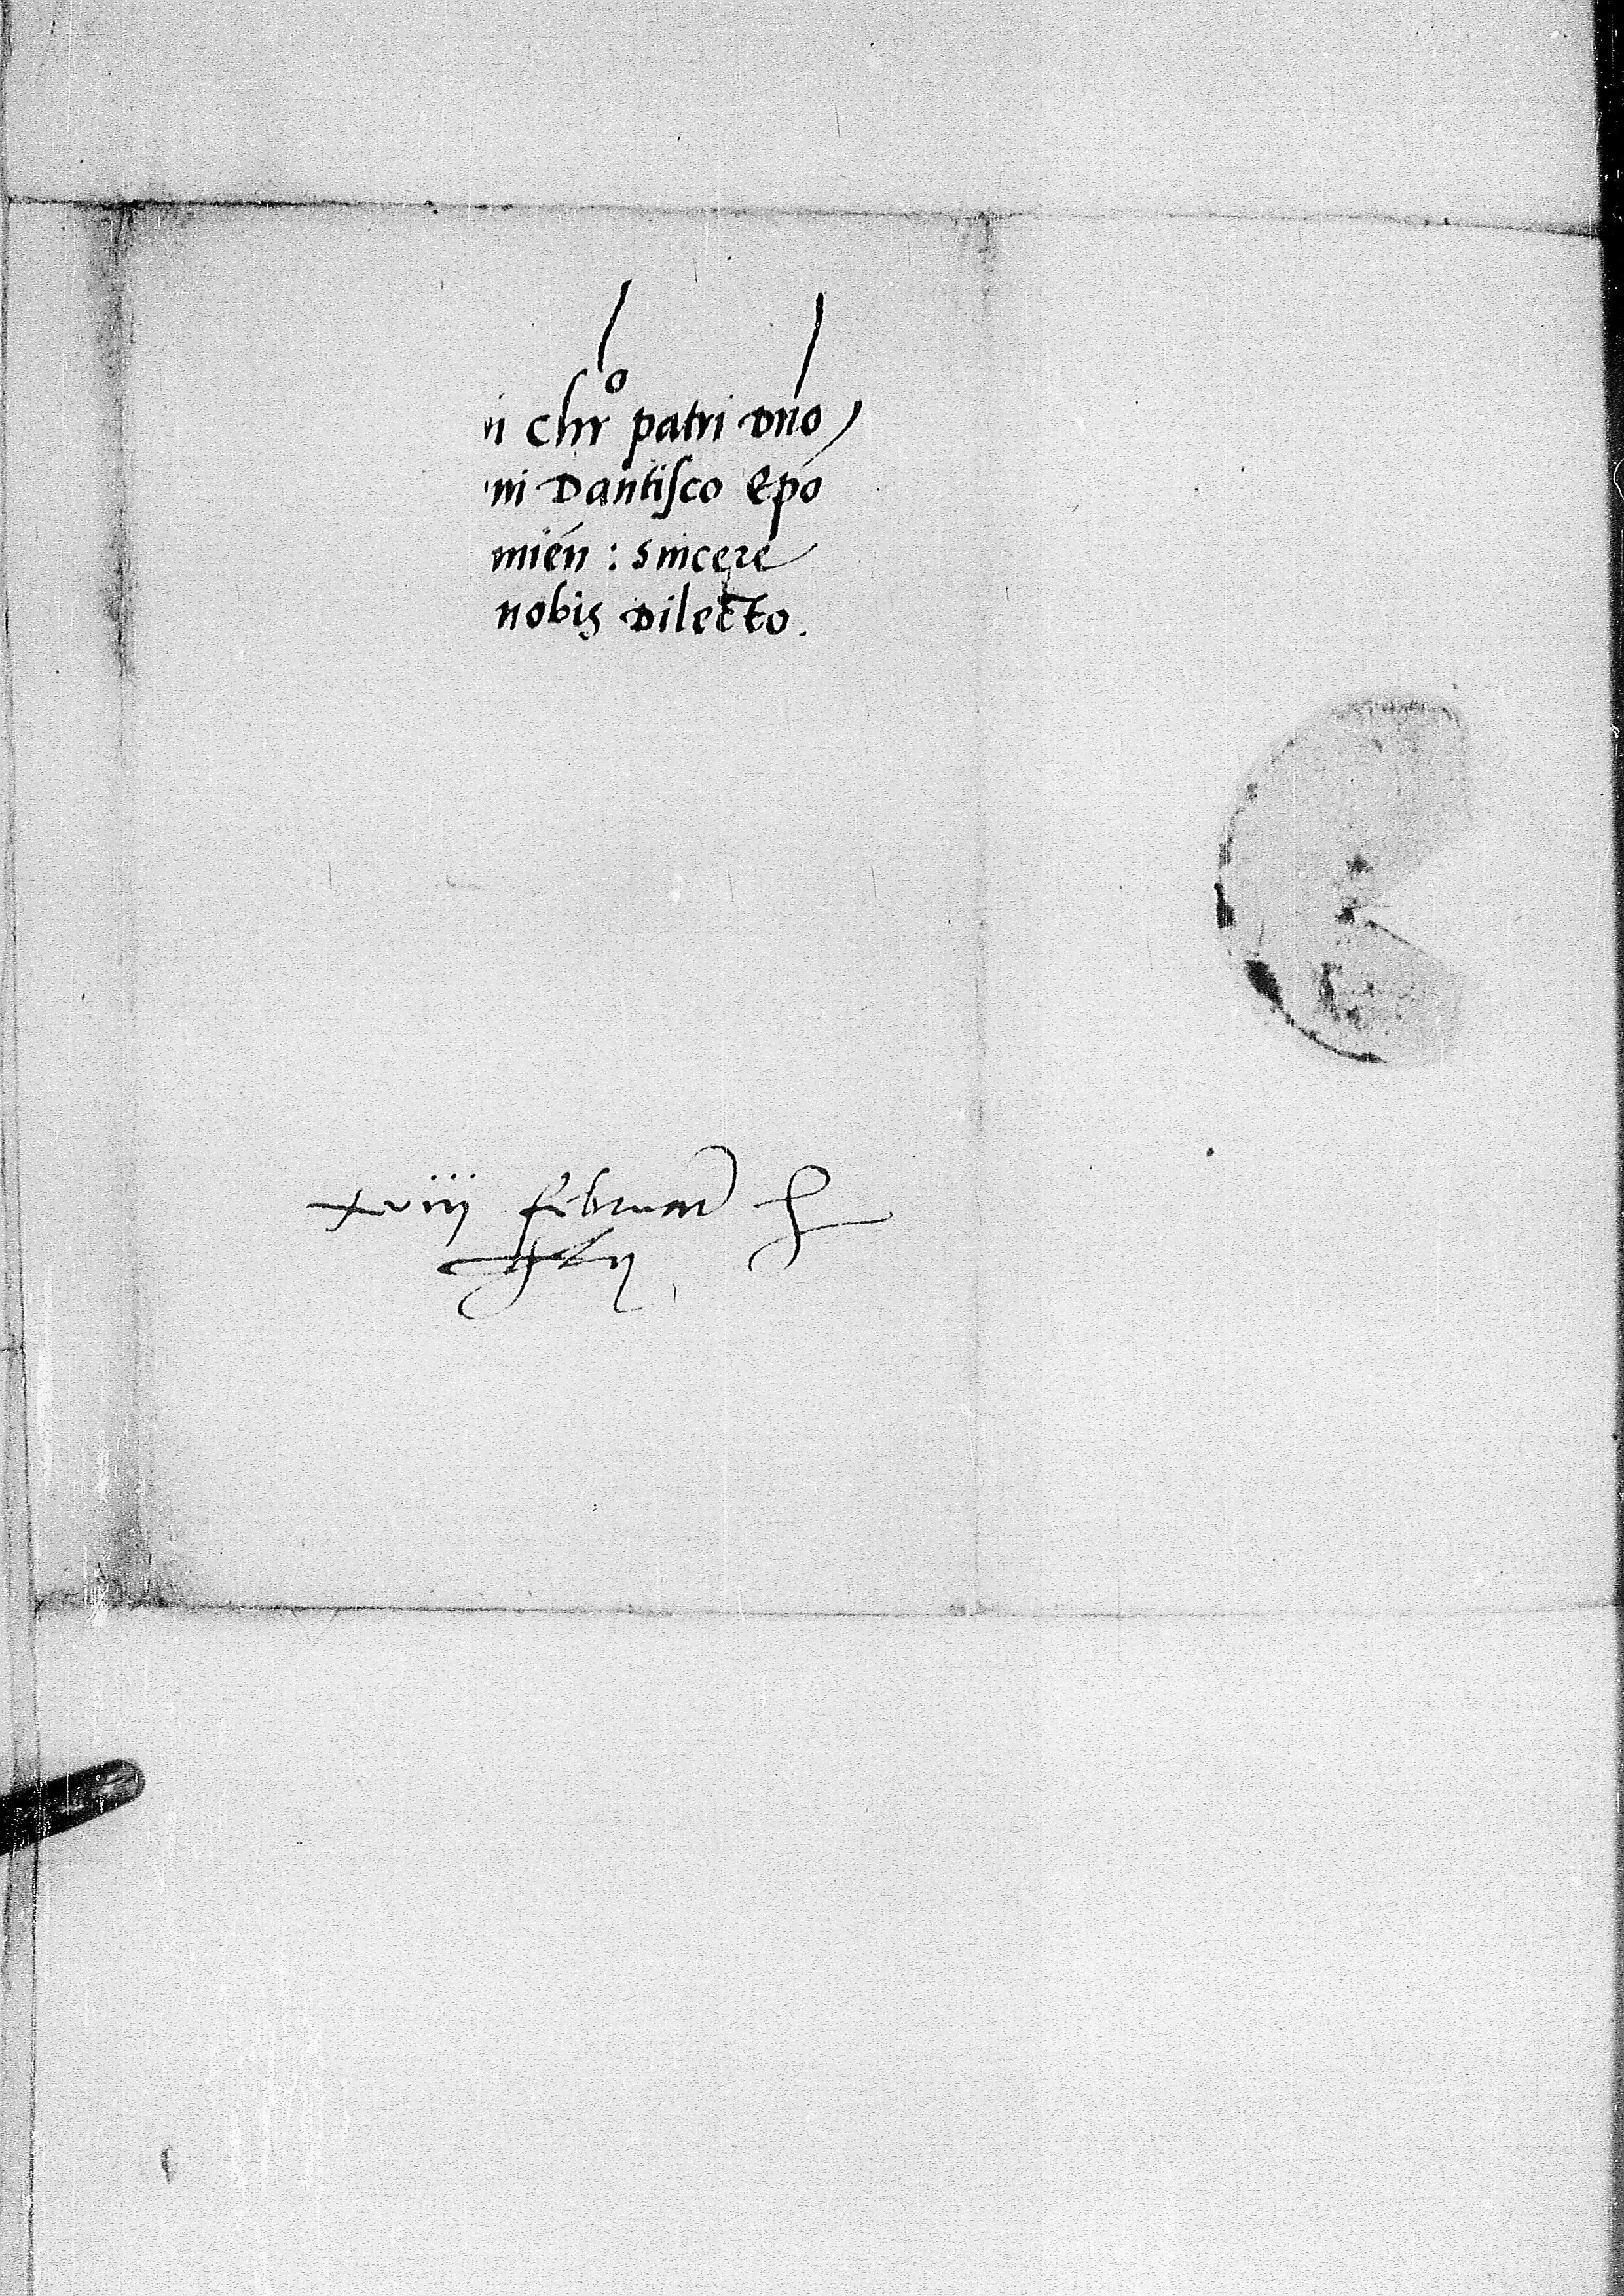 n Chrº patri dno
ni Dantisco Epo
mien : sincere
nobis dilecto.
xviij februar